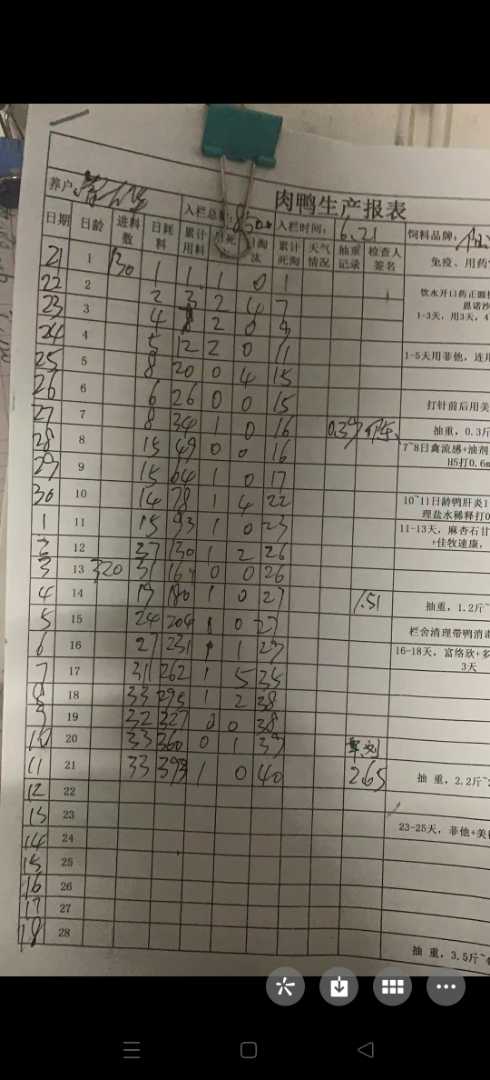 肉鸭生产报表
养户: 入栏总数: 入栏时间: 6.21 饲料品牌:
日期 日龄 进料数 日耗料 累计用料 日死 日淘汰 累计死淘 天气情况 抽重记录 检查人签名 免疫、用药
21 1 130 1 1 1 0 1
22 2 2 3 2 4 7 饮水开口药正
23 3 4 2 0 9 1-3天，用3天，4
24 4 5 12 2 0 11
25 5 8 20 0 4 15 1-5天用菲他，连用
26 6 6 26 0 0 15 打针前后用美
27 7 8 34 1 0 16 0.39 抽重，0.3斤
28 8 15 49 0 0 16 7~8日禽流感+油剂
H5打0.6m
29 9 15 64 1 0 17
30 10 14 78 1 4 22 10~11日龄鸭肝炎1
理盐水稀释打0
1 11 15 93 1 0 23 11-13天，麻杏石甘
+佳牧速康，
2 12 37 130 1 2 26
3 13 320 37 167 0 0 26
4 14 19 1 0 27 1.51 抽重，1.2斤~
5 15 24 204 0 27 栏舍清理带鸭消毒
6 16 27 231 1 16-18天，富络欣+多
3天
7 17 31 262 1 5 35
8 18 33 295 1 2 38
9 19 32 327 0 0 38
10 20 33 360 0 1 39
11 21 33 393 1 0 40 2.65 抽 重，2.2斤~
12 22
13 23 23-25天，菲他+美
14 24
15 25
16 26
17 27
18 28 抽 重，3.5斤~